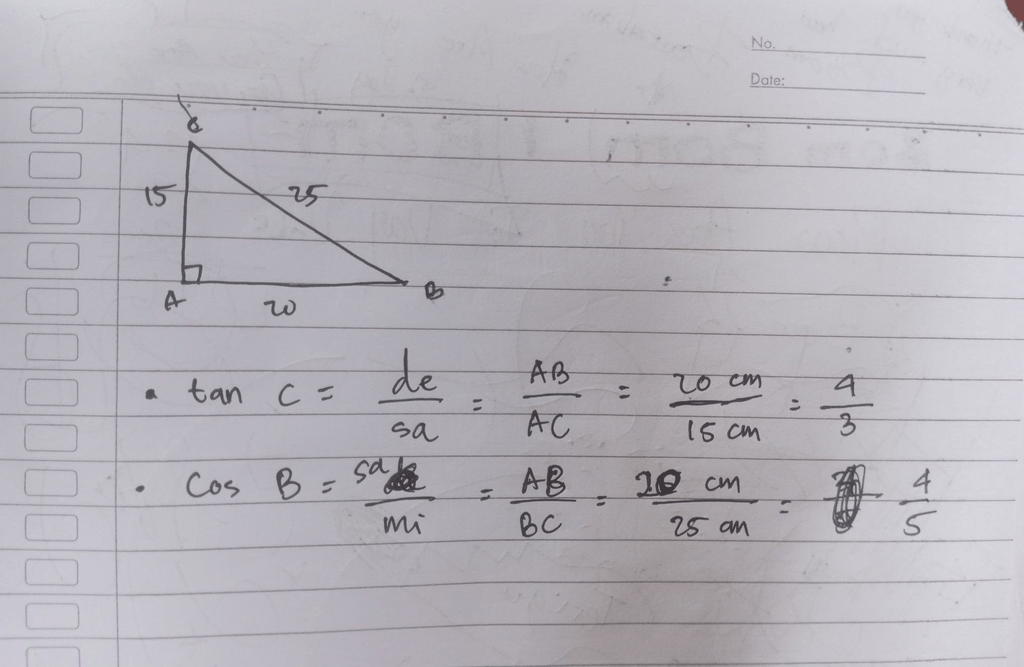 No.
Date:
C
15 25
A 20 B
• tan C = de/sa = AB/AC = 20 cm/15 cm = 4/3
• Cos B = sa/mi = AB/BC = 20 cm/25 cm = 4/5